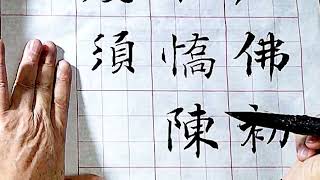 佛初
憍陳
須